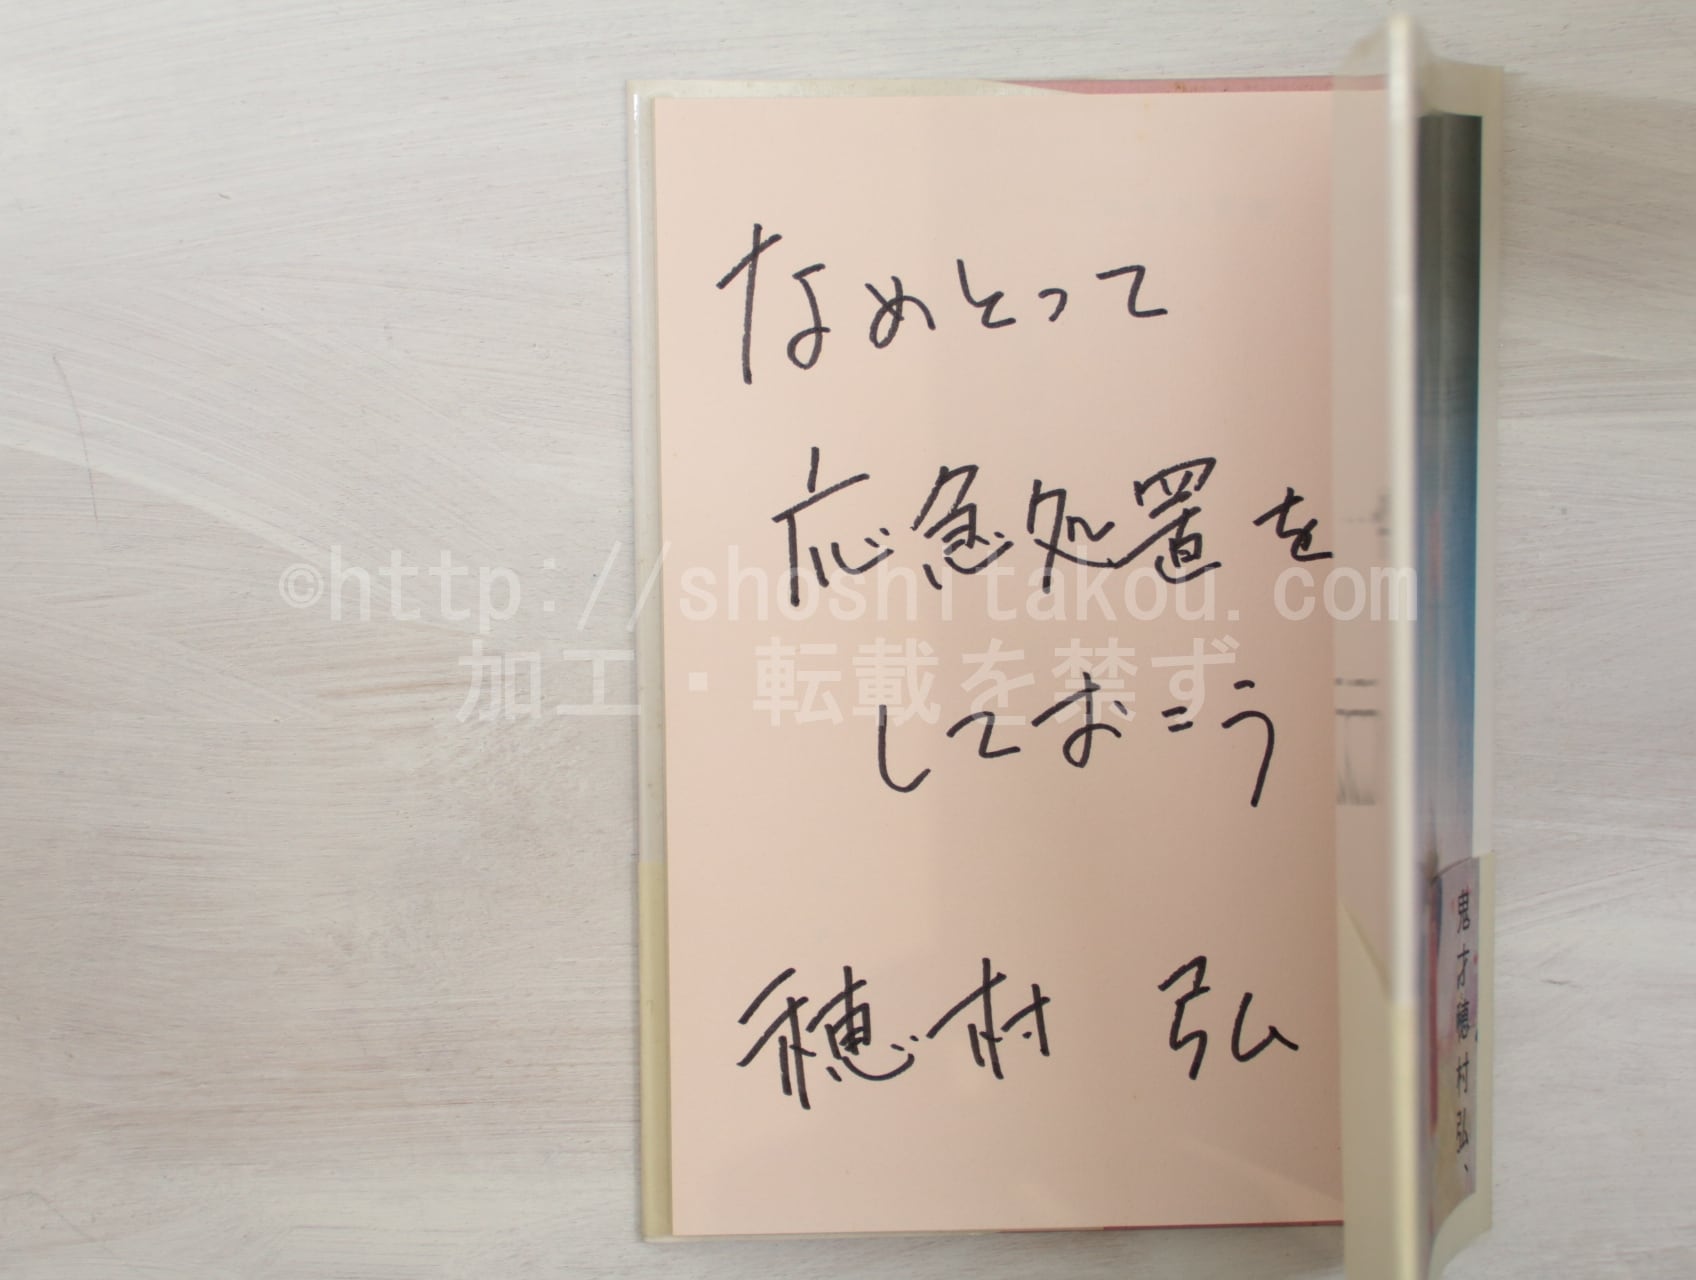 なめとって
応急処置を
©http://shoshitakou.com
加工・転載を禁ず
しておこう
穂村 弘
鬼才穂村弘、